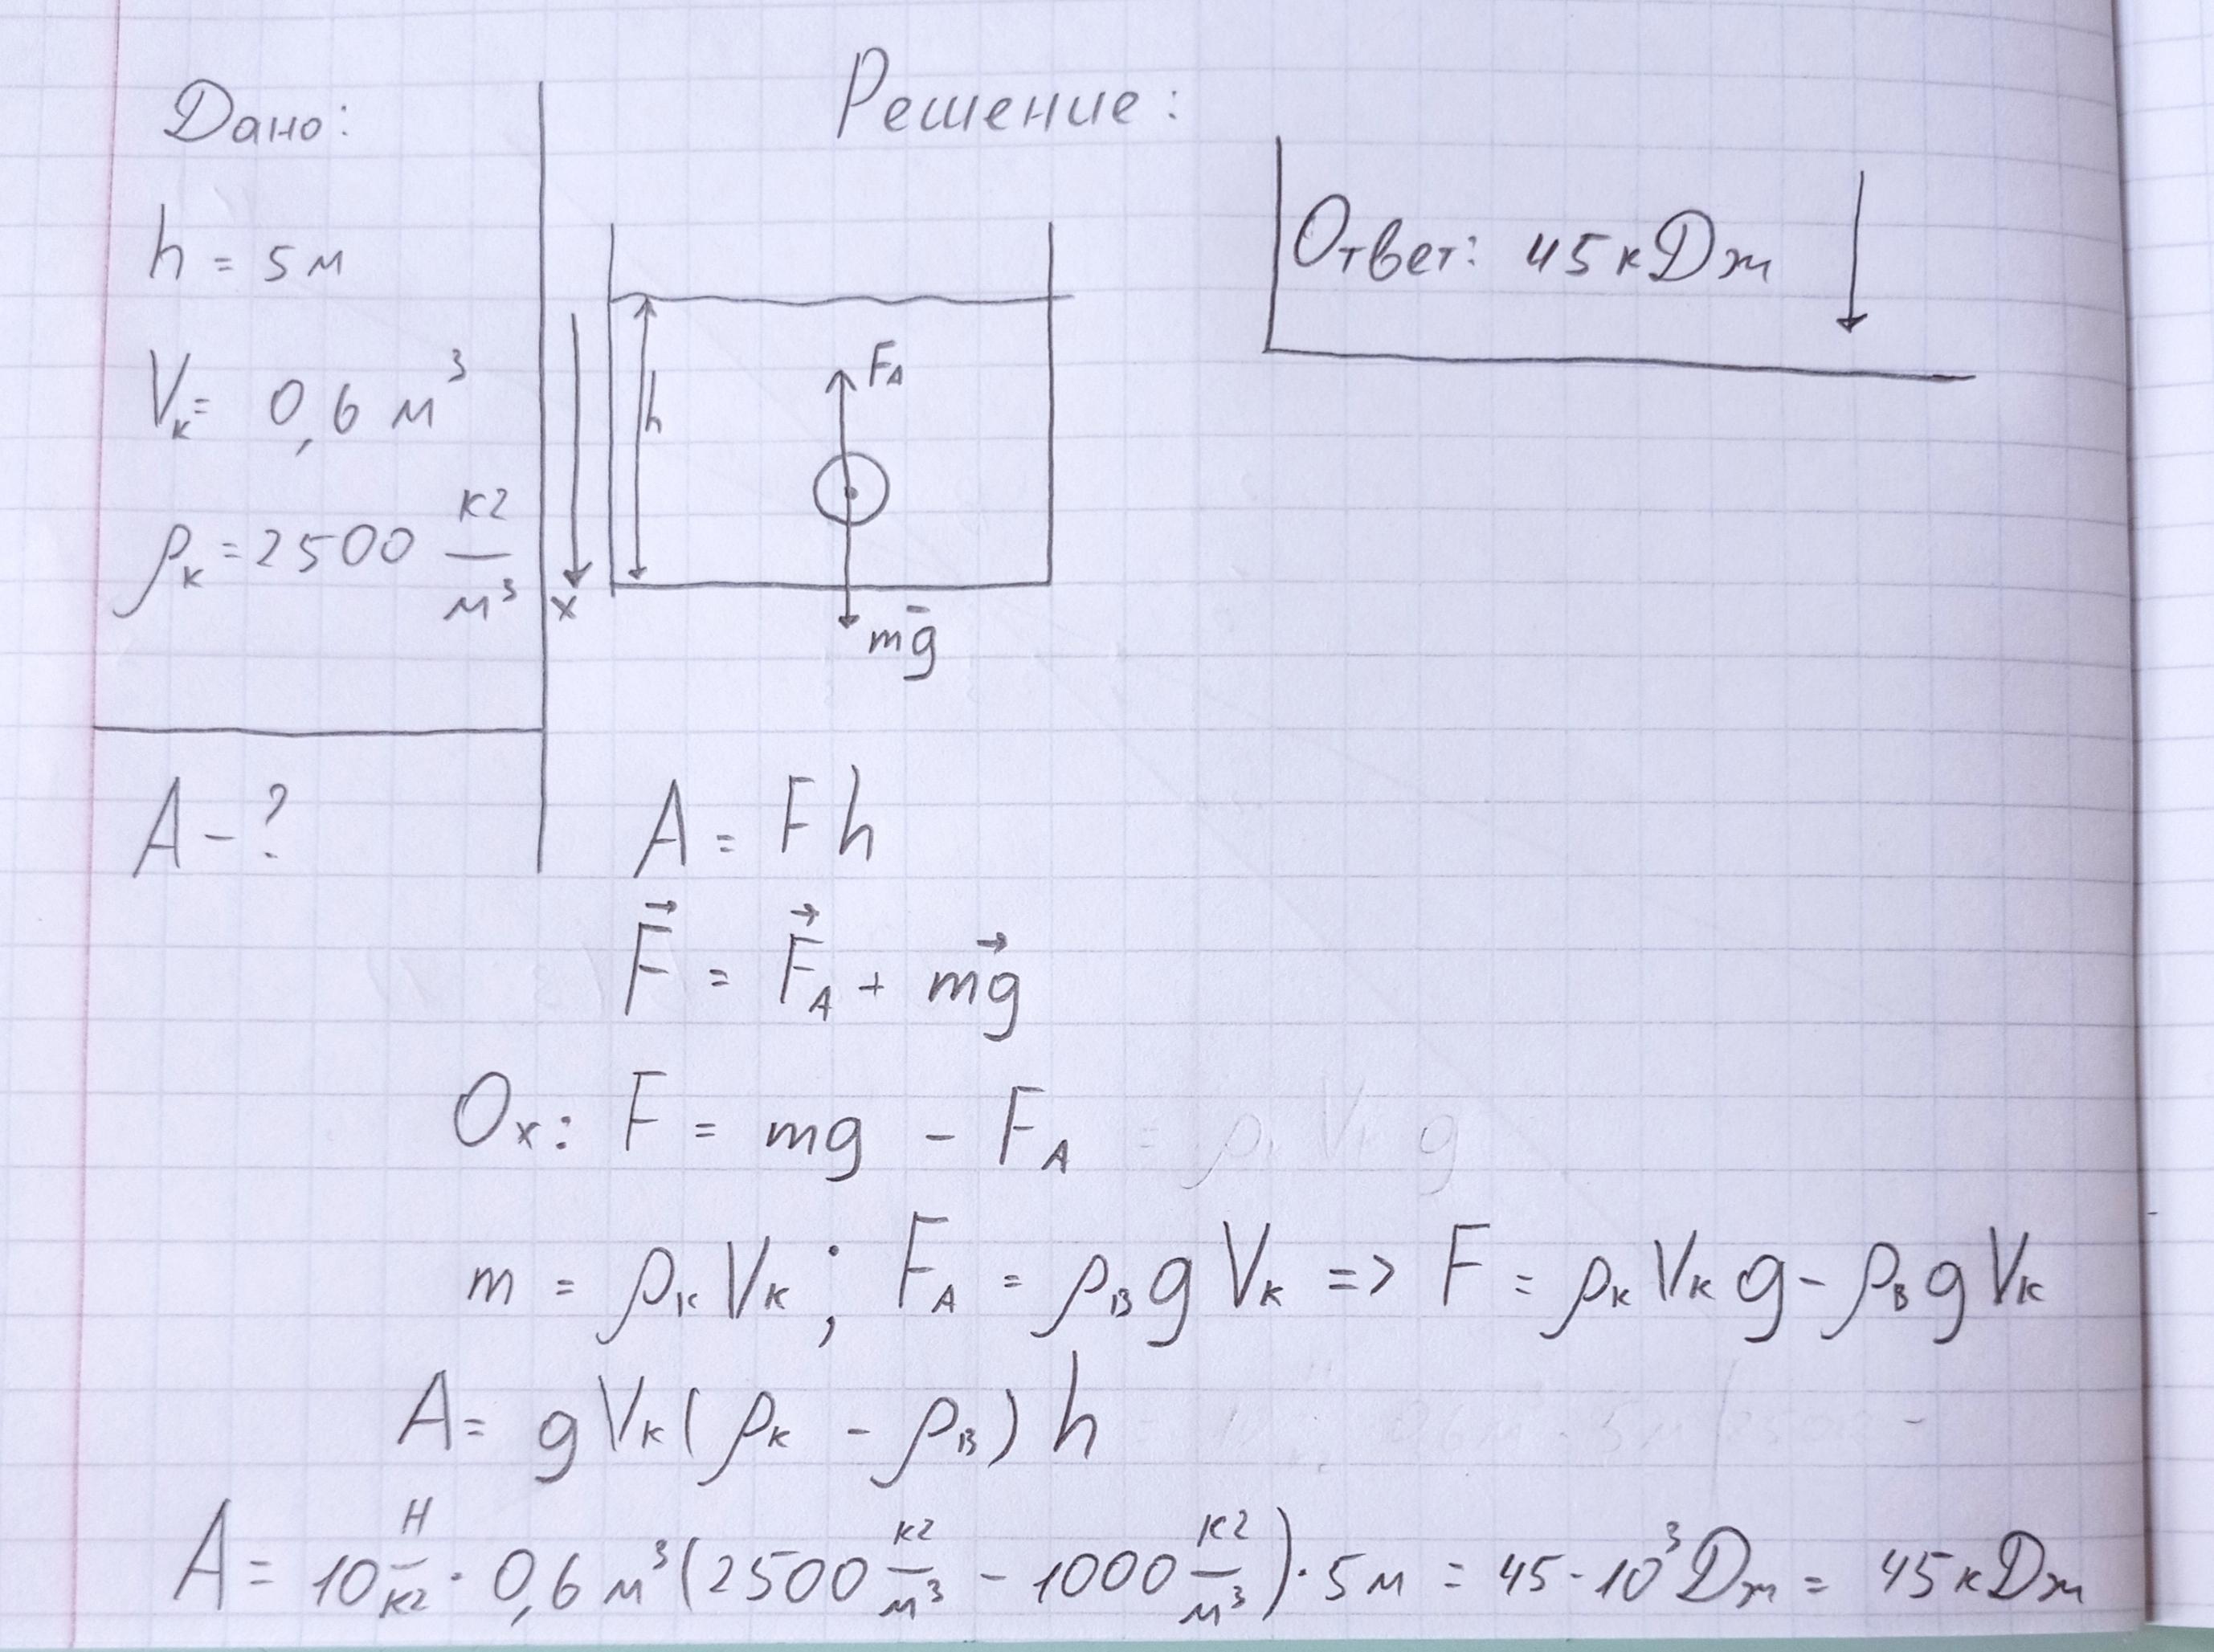 Дано:
h = 5 м
Vк = 0,6 м³
ρк = 2500 кг/м³
A - ?
Решение:
h
FА
x
mg̅
Ответ: 45 кДж
A = Fh
F⃗ = F⃗А + mg⃗
Ox: F = mg - FА
m = ρк Vк ; FА = ρв g Vк => F = ρк Vк g - ρв g Vк
A = g Vк (ρк - ρв) h
A = 10 Н/кг · 0,6 м³ (2500 кг/м³ - 1000 кг/м³) · 5 м = 45 · 10³ Дж = 45 кДж